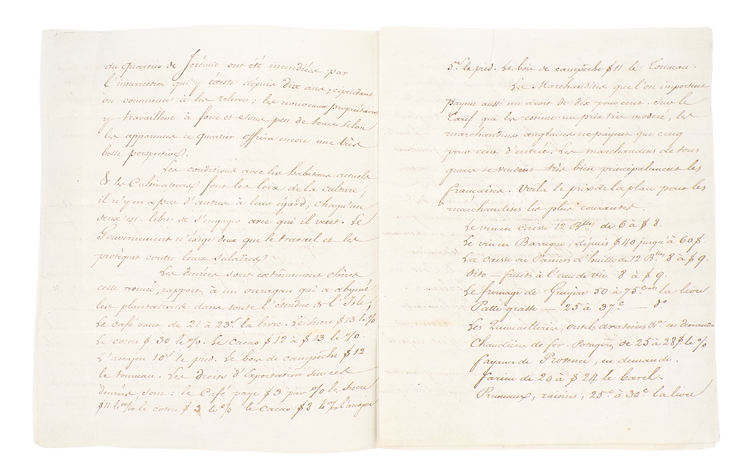 du quartier de Jérémie ont été incendiées par
l'insurrection qui y existe depuis dix ans; cependant
on commence à les relever, les nouveaux propriétaires
y travaillent à force et sous peu de tems selon
les apparences ce quartier offrira encore une très
belle perspective.
Les conditions avec les habitans actuels
& les Cultivateurs font les loix de la culture,
il n'y en a pas d'autre à leur égard, chaqu'un
d'eux est libre de s'engager avec qui il veut. Le
Gouvernement n'exige d'eux que le travail et les
protège contre leurs salaires.
Les denrées sont extrêmement chères
cette année, rapport à un ouragan qui a abymé
les plantations dans toute l'étendue de l'Isle;
Le café vaut de 21 à 23s. la livre. Le sucre $ 13 le %
Le coton $ 30 le %. Le cacao $ 12 à $ 13 le %.
L'acajou 10s. le pied. Le bois de campêche $ 12
le tonneau. Les droits d'Exportation sur ces
denrées sont: le Café paye $ 3 par % le sucre
le % le coton $ 3 le % le cacao $ 3 le % l'acajou
5s. le pied. Le bois de campêche $ 11 le Tonneau.
Les Marchandises que l'on importent
payent aussi un droit de dix pour cent. Sur le
Tarif qui les estime un prix très modéré, les
marchandises anglaises ne payent que cinq
pour cent d'entrée. Les marchandises de tous
genres se vendent très bien principalement les
françaises. Voila le prix de la place pour les
marchandises les plus courantes.
Le vin en caisse 12 Blles de 6 à $ 8.
Le vin en Barique, depuis $ 40 jusqu'à 60 $
La caisse ou Paniers d'huile de 12 Blles 8 à $ 9.
Dito — fruits à l'eau de vie 8 à $ 9.
Le fromage de Gruyère 50 à 75 la livre
Patte grasse — 25 à 37 — do
Les Quincailleries, outils aratoires &a. en demande
Chaudière de fer, de 25 à 28 $ le %
fayence de Provence, en demande.
farine de 20 à $ 24 le baril.
Pruneaux, raisins, 25s. à 30s. la livre